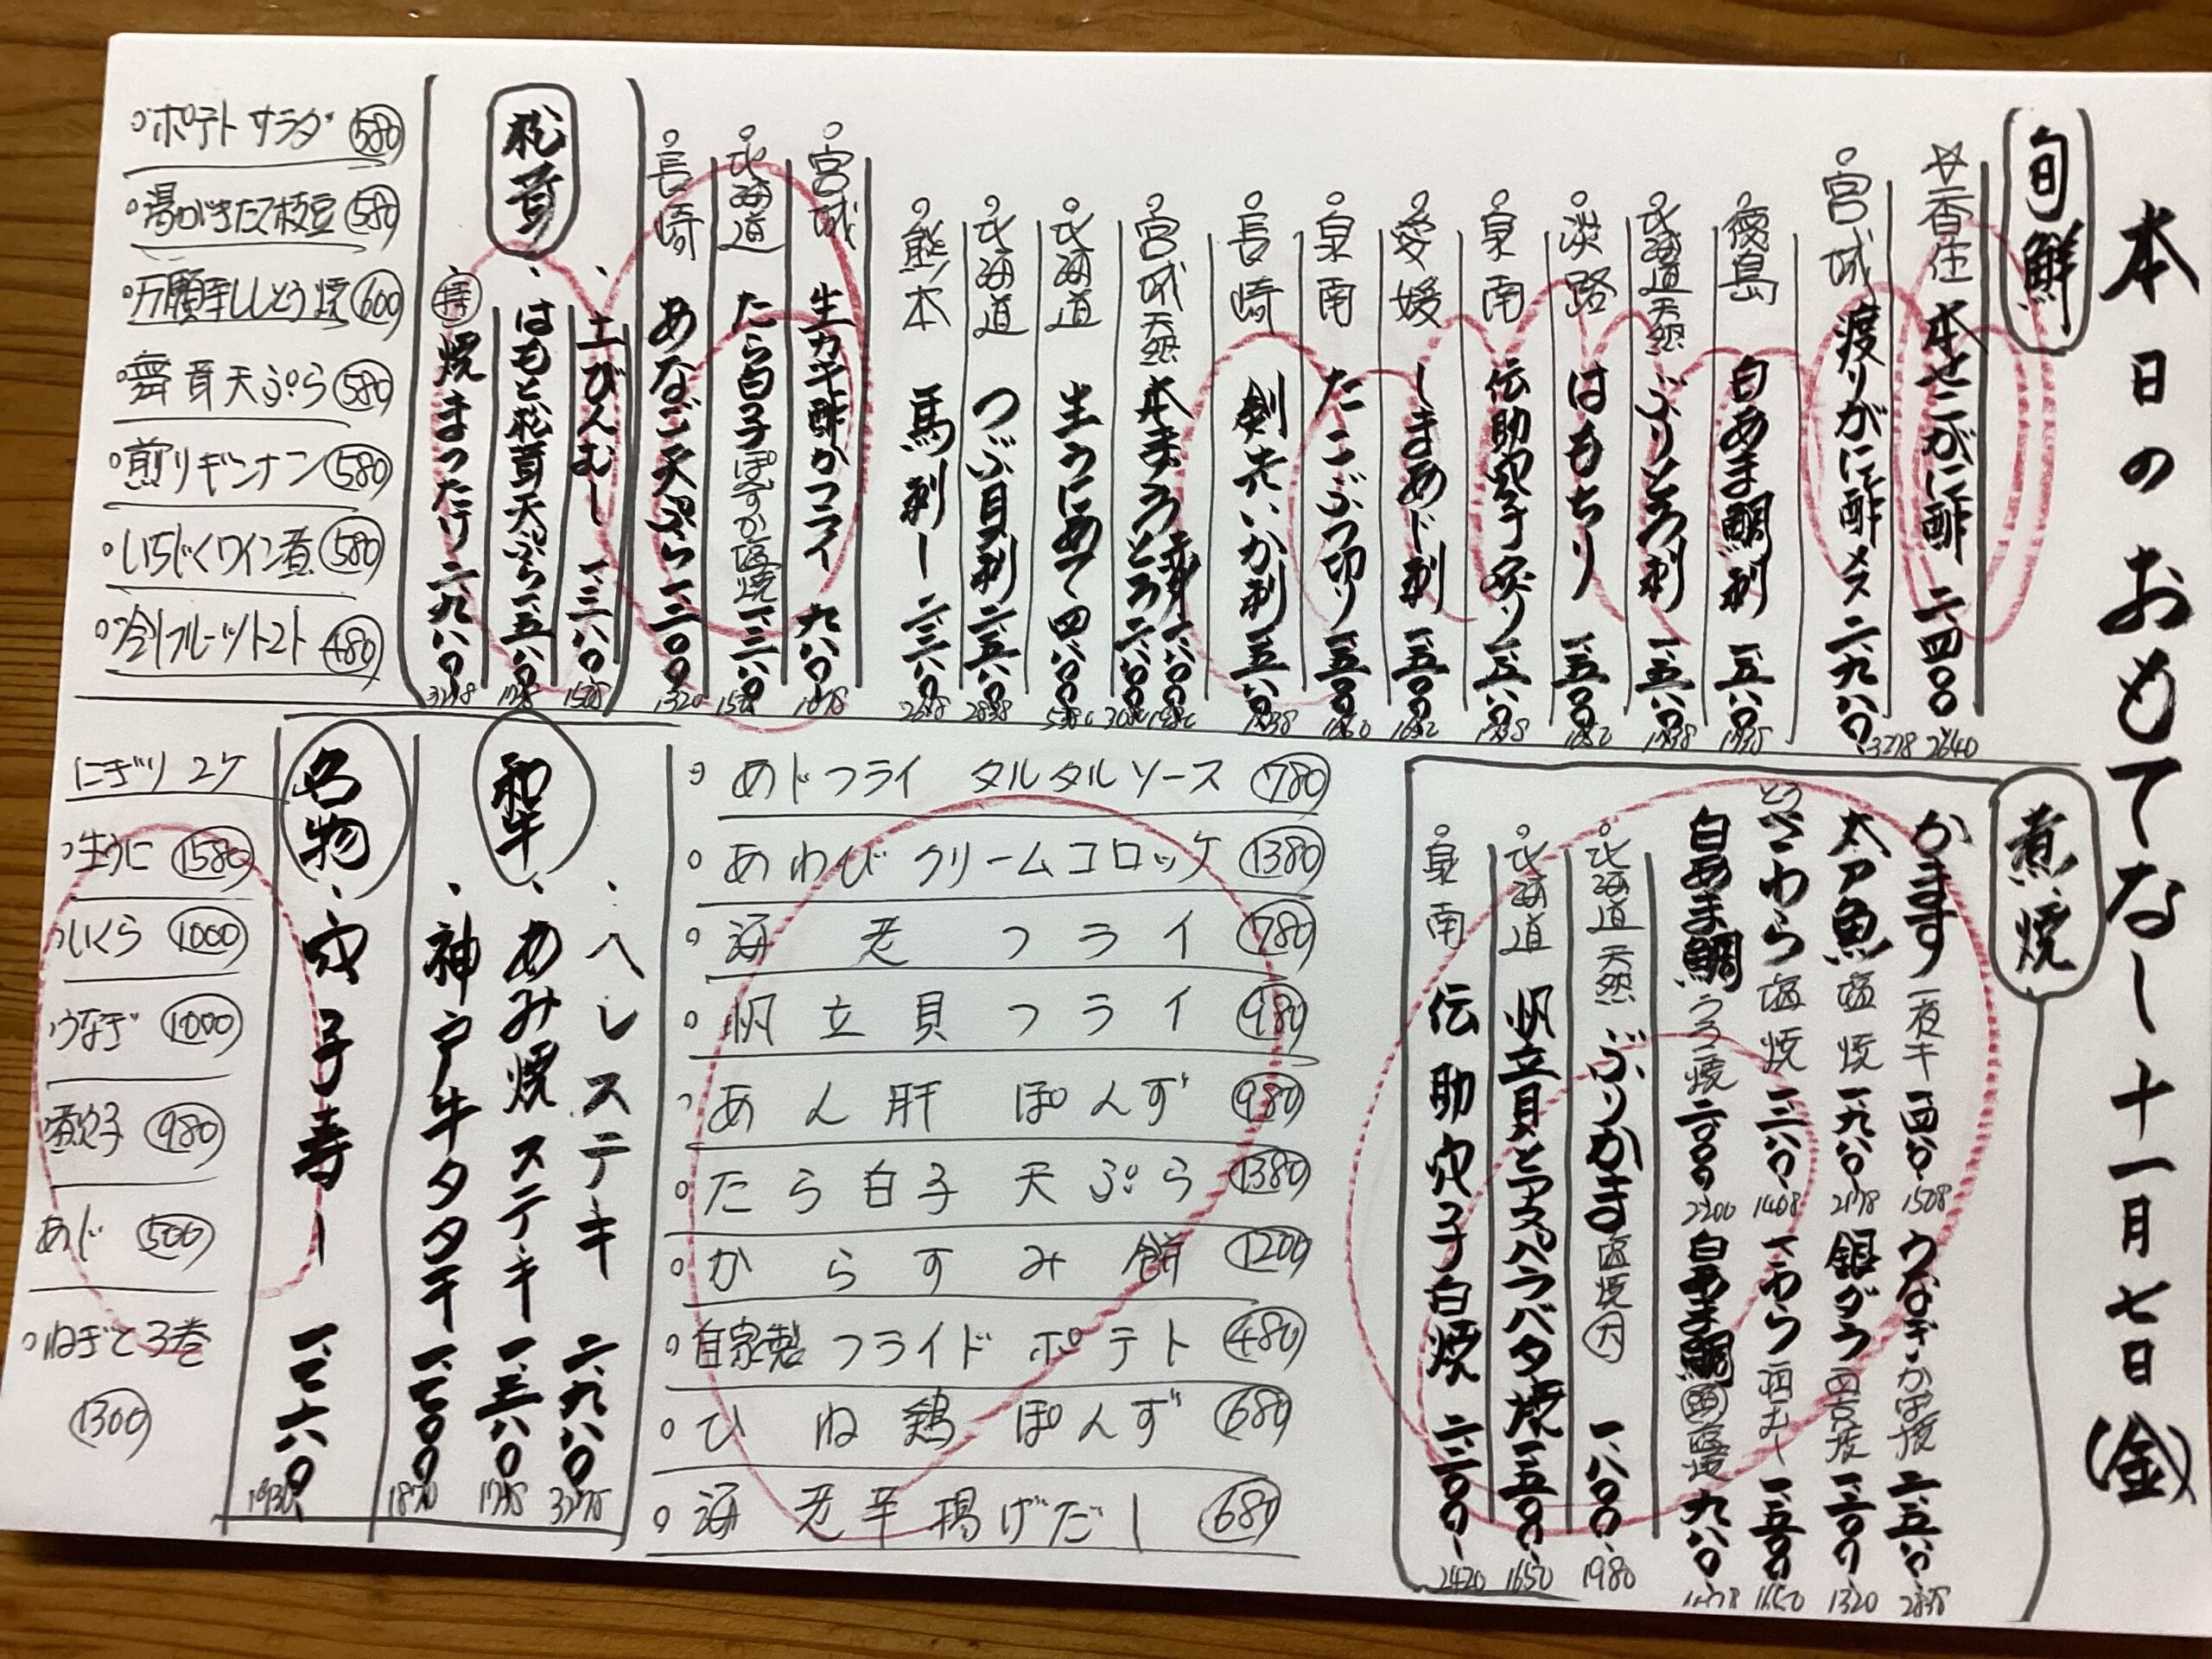 本日のおもてなし 十一月七日(金)
旬鮮
☆香住 本せこがに酢 二、四〇〇 2640
宮城 渡りがに酢メス 二、九八〇 3278
徳島 白あま鯛刺 一、五八〇 1738
北海道天然 ぶりとろ刺 一、五八〇 1738
淡路 はもちり 一、五〇〇 1650
泉南 伝助穴子炙り 一、五八〇 1738
愛媛 しまあじ刺 一、五〇〇
泉南 たこぶつ切り 一、五〇〇
長崎 剣先いか刺 一、五八〇 1738
宮城天然 本まぐろ
北海道 生うにあて 四、八〇〇
北海道 つぶ貝刺 二、五八〇 2838
熊本 馬刺し
宮城 生カキ酢かフライ 九八〇 1078
北海道 たら白子ぽんずか塩焼
長崎 あなご天ぷら 一、二〇〇 1320
松茸
、土びんむし 一、三八〇
、はもと松茸天ぷら 一、五八〇 1738
、特 焼まつたけ 二、九八〇 3278
・ポテトサラダ 580
・湯がきたて枝豆 580
・万願寺ししとう焼 600
・舞茸天ぷら 580
・煎りギンナン 580
・いちじくワイン煮 580
・冷しフルーツトマト 480
煮・焼
かます 一夜干 一、四八〇
うなぎ かば焼 二、五八〇 2838
太刀魚 塩焼 一、九八〇 2178
銀ダラ 西京焼 一、二〇〇 1320
とろさわら 塩焼 一、二八〇 1408
白あま鯛 うろこ焼 二、〇〇〇 2200
北海道天然 ぶりかま 塩焼 大 一、八〇〇 1980
北海道 帆立貝とアスパラバタ焼 一、五〇〇 1650
泉南 伝助穴子白焼 二、二〇〇 2420
・あじフライ タルタルソース 780
・あわびクリームコロッケ 1380
・海老フライ 780
・帆立貝フライ 980
・あん肝ぽんず 980
・たら白子天ぷら 1380
・からすみ餅 1200
・自家製フライドポテト 480
・ひね鶏ぽんず 680
・海老芋揚げだし 680
和牛
・ヘレステキ 二、九八〇 3278
、あみ焼ステキ
、神戸牛タタキ 一、七〇〇 1870
名物
、穴子寿し 一、七六〇
にぎり 2ケ
・生うに 1580
・いくら 1000
・うなぎ 1000
煮穴子 980
あじ 500
・ねぎとろ巻
1300